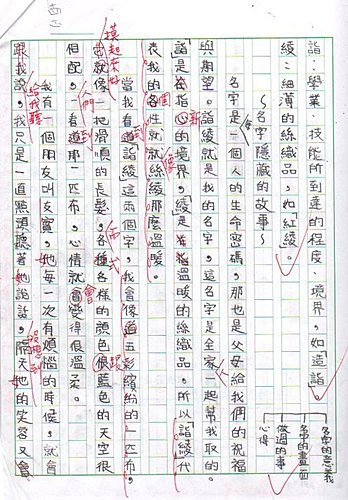 詣：學業、技能所到達的程度、境界，如「造詣」。
綾：細薄的絲織品，如「紅綾」。
名字的意義
名字的畫面
做過的事
心得
～名字隱藏的故事～
名字是一個人的生命密碼，那也是父母給我們的祝福
與期望。詣綾就是我的名字，這名字是全家一起幫我取的。
「詣」是在指心的境界，「綾」是溫暖的絲織品，所以「詣綾」代
表我的個性就像絲綾那麼溫暖。
當我看到詣綾這兩個字，我會像過五彩繽紛的一匹布，
就像一把滑順的長髮，各種各樣的顏色跟藍色的天空很
相配，看道那一匹布，心情就會變得很溫柔。
摸起來好
各式
我有一個朋友叫友賓，她每一次有煩惱的時候，就會
跟我說，我只是一直點頭聽著她說說，隔天她的笑容又會
給我聽
沒想到